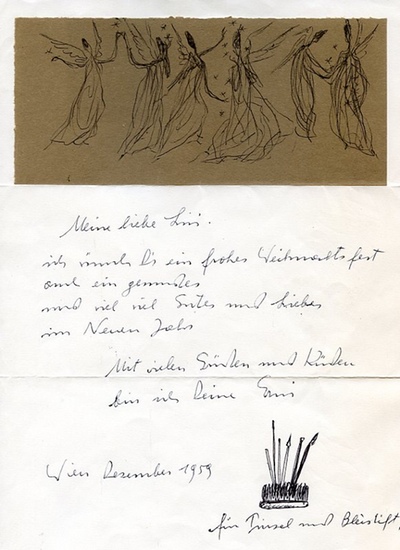 Meine liebe Lisi.
ich wünsch Dir ein frohes Weihnachtsfest
und ein gesundes
und viel viel Gutes und Liebes
im Neuen Jahr
Mit vielen Grüßen und Küssen
bin ich Deine
Wien Dezember 1959
für Pinsel und Bleistift.